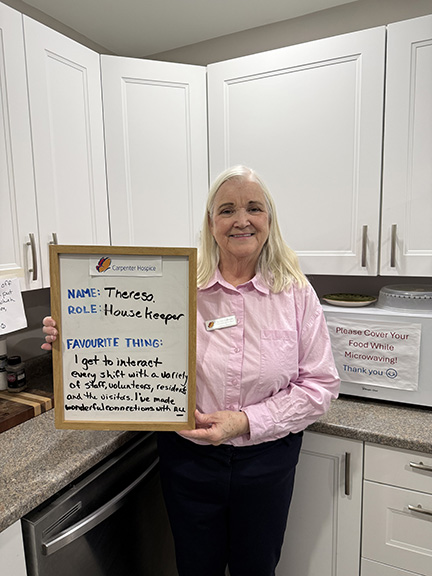 Carpenter Hospice
NAME: Theresa
ROLE: Housekeeper
FAVOURITE THING:
I get to interact
every shift with a variety
of staff, volunteers, residents
and the visitors. I've made
wonderful connections with ALL
Please Cover Your
Food While
Microwaving!
Thank you